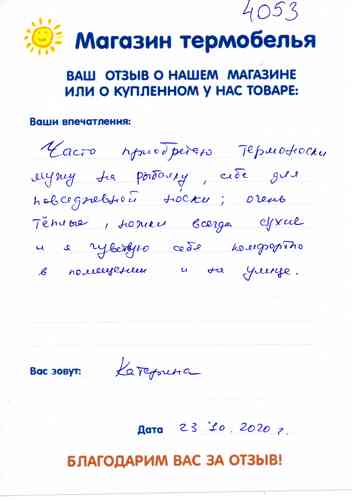 4053
Магазин термобелья
ВАШ ОТЗЫВ О НАШЕМ МАГАЗИНЕ
ИЛИ О КУПЛЕННОМ У НАС ТОВАРЕ:
Ваши впечатления:
Часто приобретаю термоноски
мужу на рыбалку, себе для
повседневной носки; очень
тёплые, ножки всегда сухие
и я чувствую себя комфортно
в помещении и на улице.
Вас зовут: Катерина
Дата 23.10.2020 г.
БЛАГОДАРИМ ВАС ЗА ОТЗЫВ!